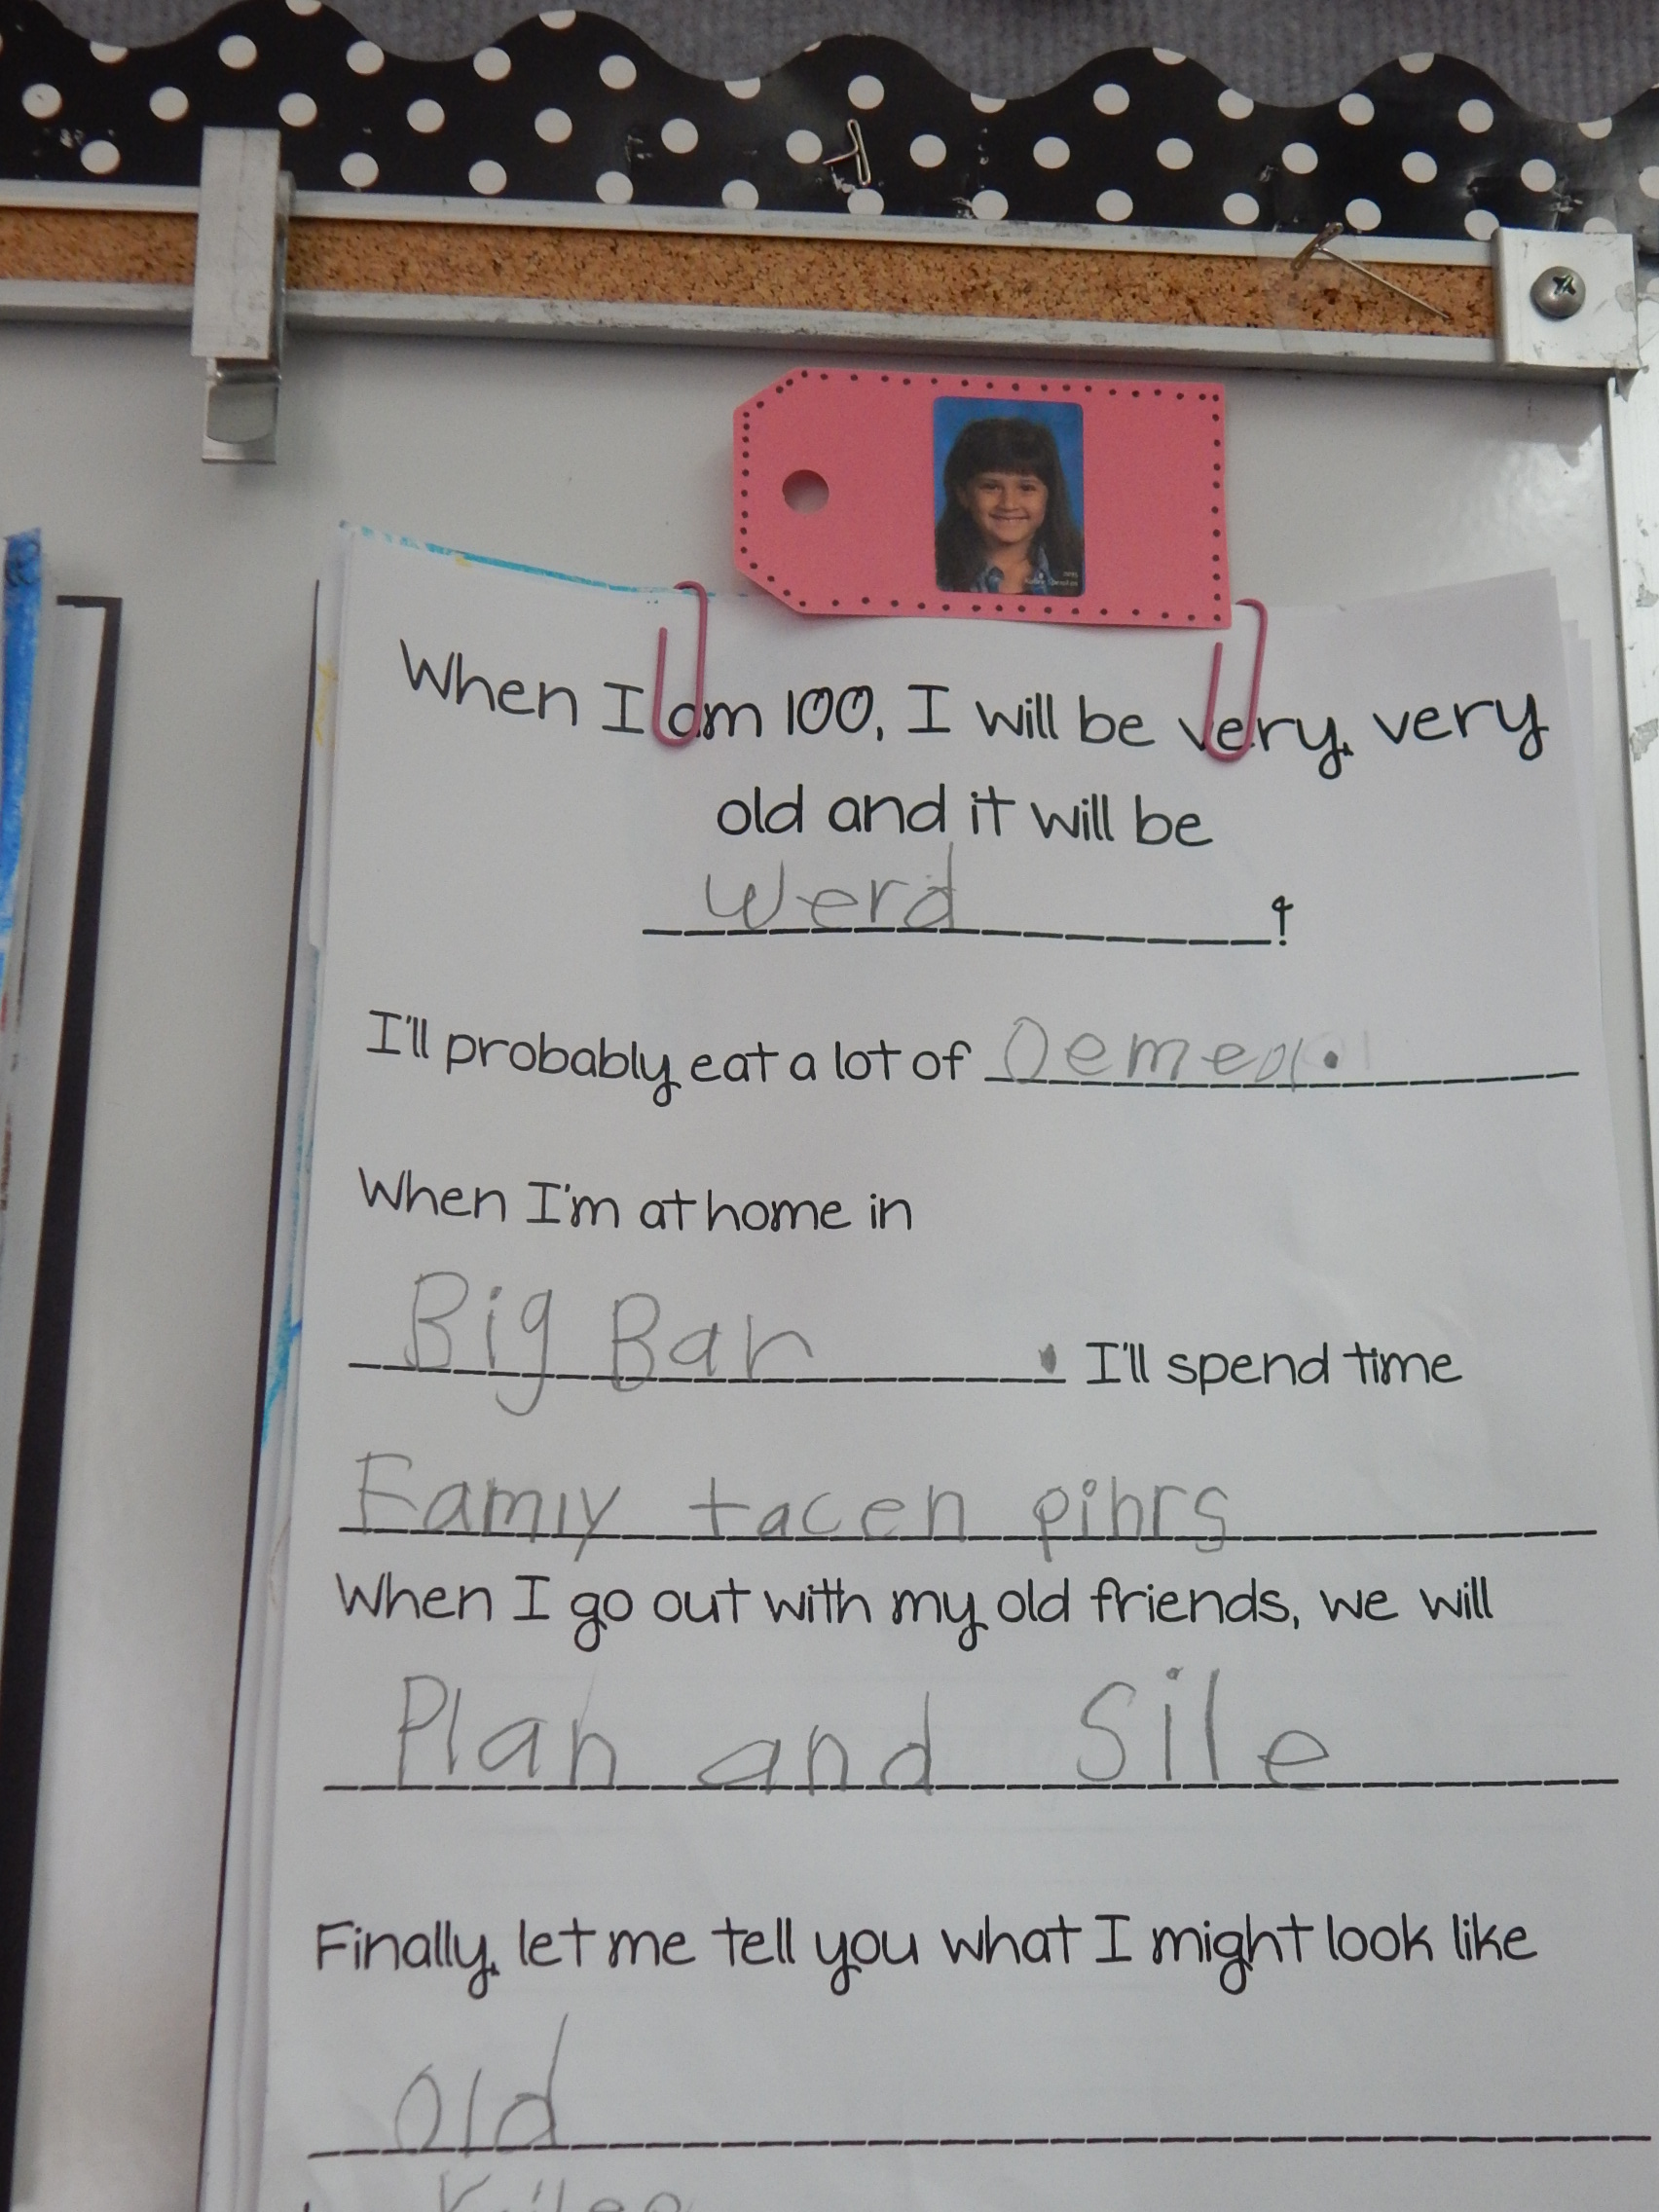 When I am 100, I will be very, very
old and it will be
werd !
I'll probably eat a lot of Oemeol.
When I'm at home in
Big Bar . I'll spend time
Famiy tacen pihrs
When I go out with my old friends, we will
Plah and Sile
Finally, let me tell you what I might look like
old